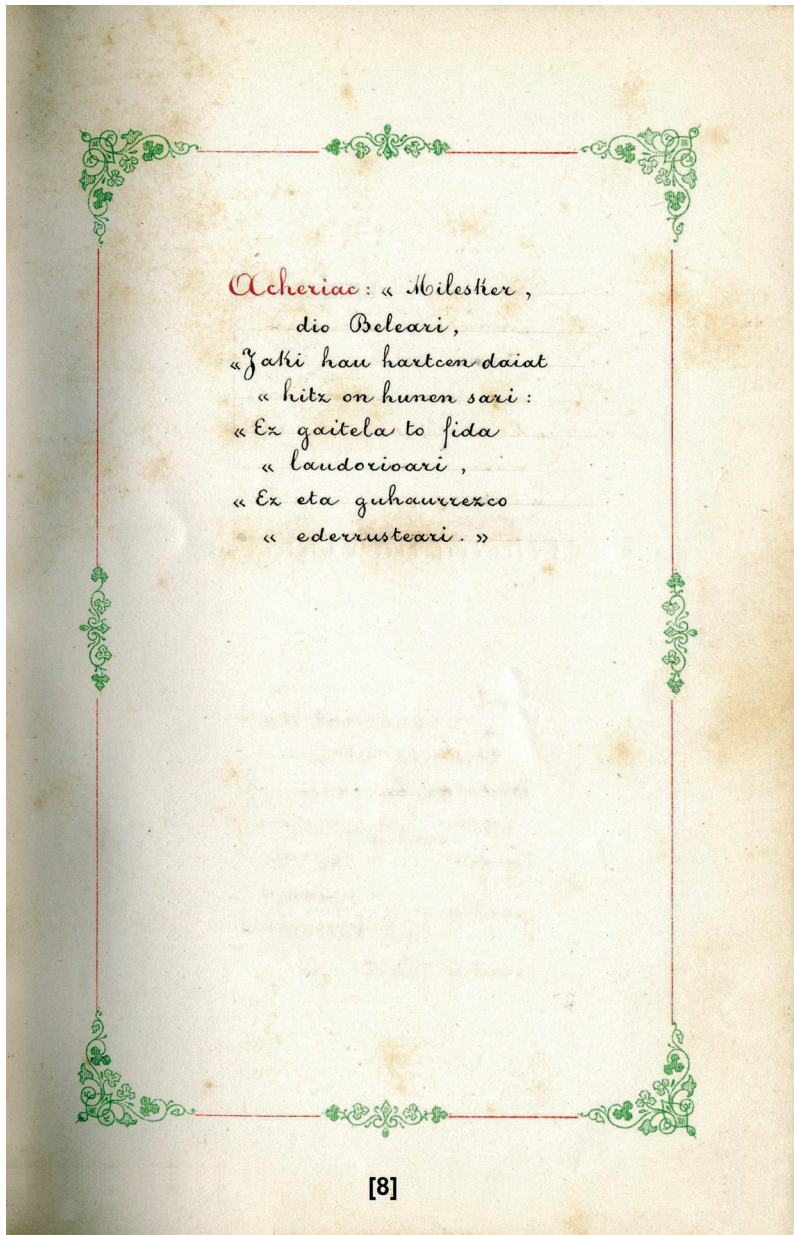 Acheriac: « Milesker,
dio Beleari,
« Jaki hau hartcen daiat
« hitz on hunen sari :
« Ez gaitela to fida
« laudorioari ,
« Ez eta guhaurrezco
« ederrusteari . »
[8]